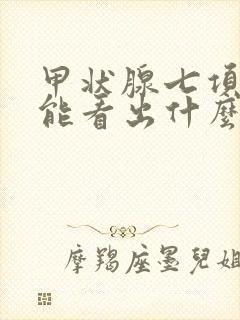 甲状腺七項
能看出什麼
摩羯座墨兒姐